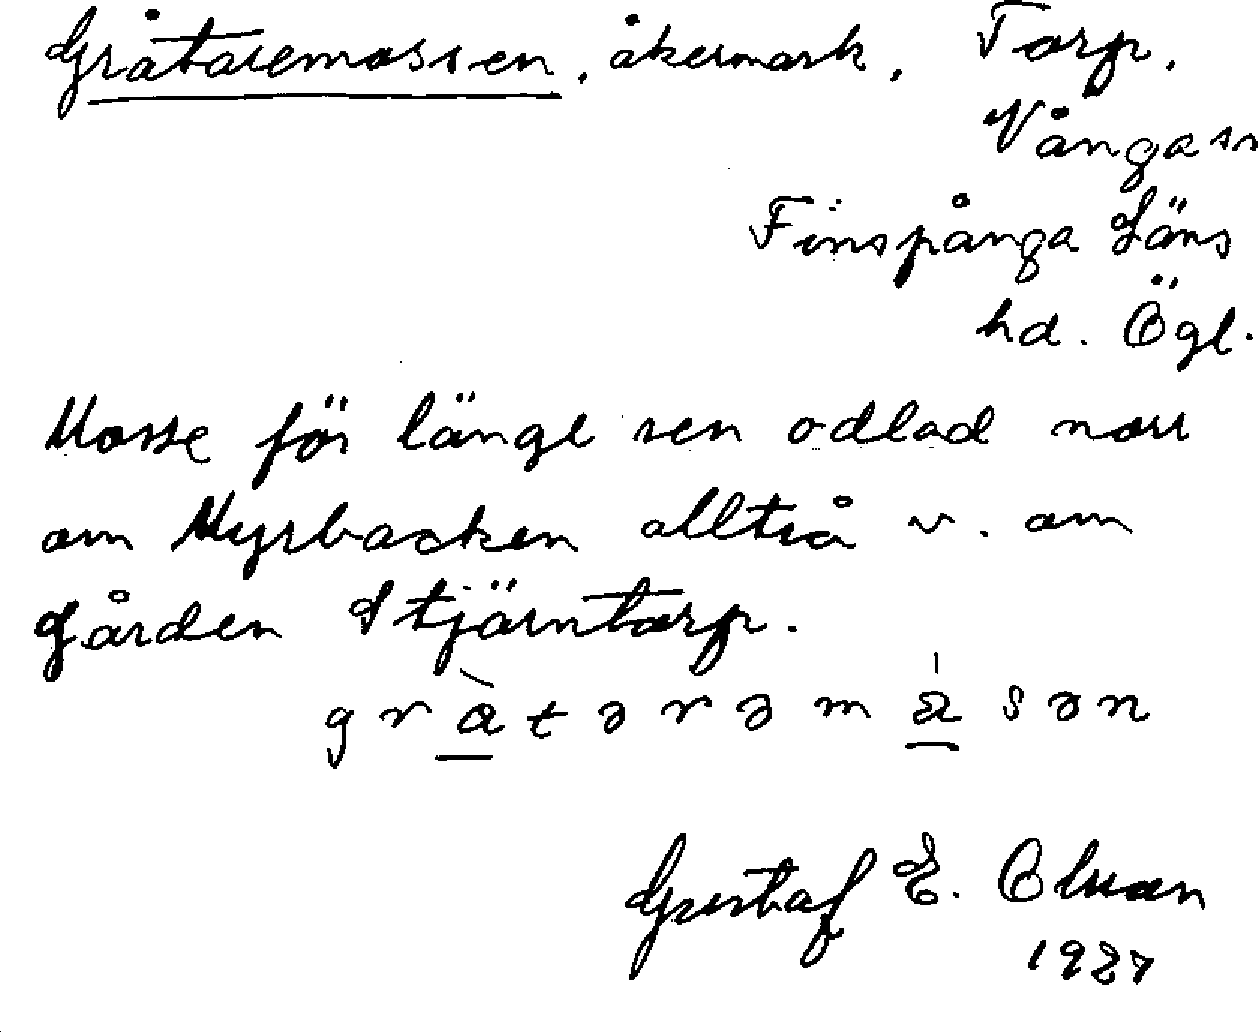 Gråtaremossen, åkermark, Torp,
Vånga sn
Finspånga Läns
hd. Ögl.
Mosse för länge sen odlad norr
om Myrbacken alltså v. om
gården Stjärntorp.
Gustaf E. Olsson
1927